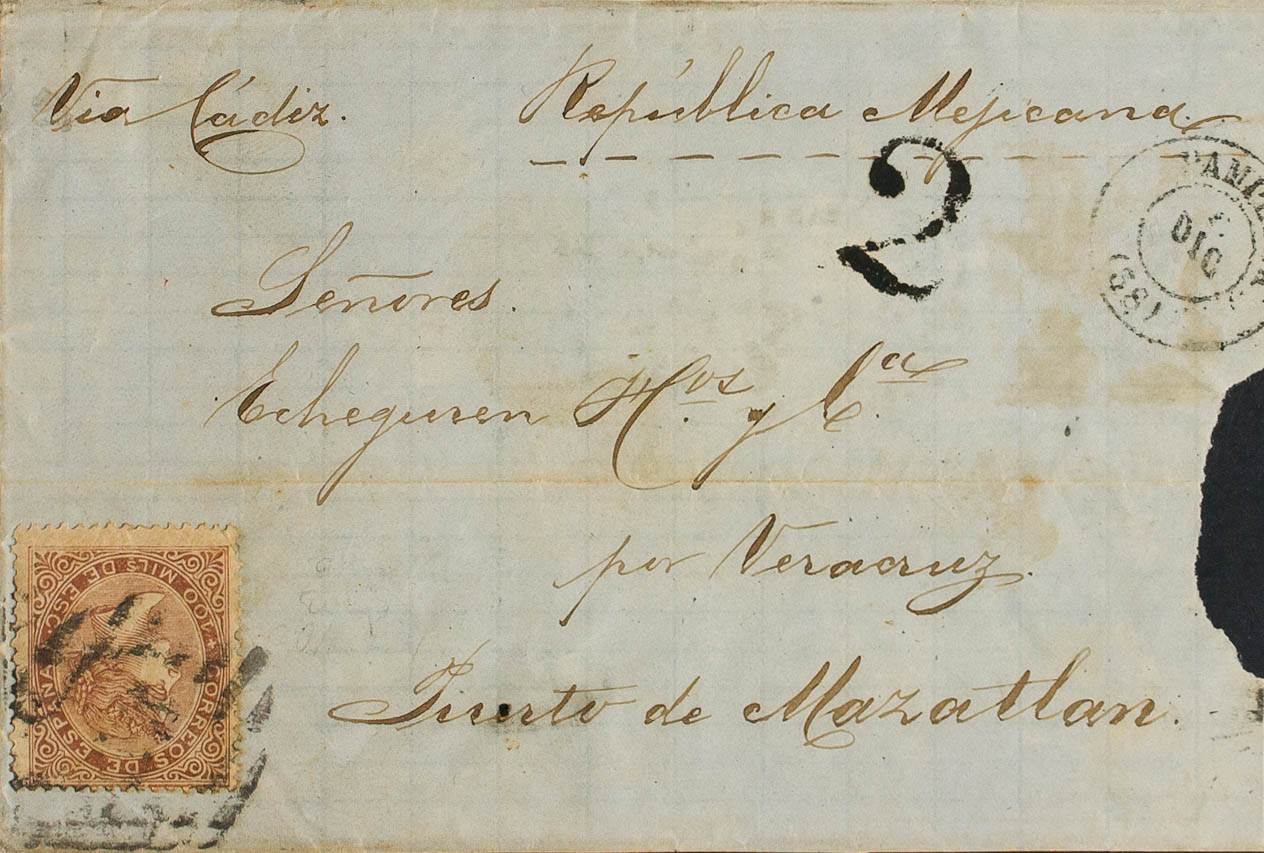 Via Cádiz. República Mejicana
2
DIC
(38)
Señores.
Echeguren H.os y C.a
por Veracruz.
Puerto de Mazatlan.
CORREOS DE ESPAÑA
MILS DE ESC.